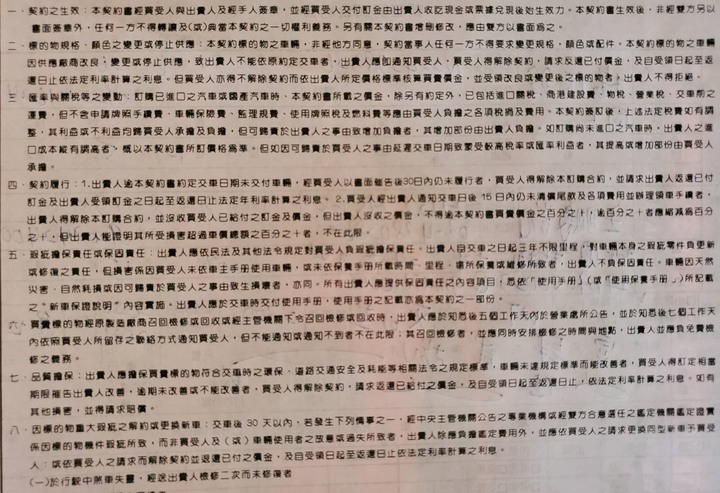 一、契約之生效：本契約書經買受人與出賣人及經手人簽章，並經買受人交付訂金由出賣人收訖現金或票據兌現後始生效力。本契約書生效後，非經雙方另以
書面簽章外，任何一方不得轉讓及(或)典當本契約之一切權利義務。另有關本契約書增刪修改，應由雙方以書面為之。
二、標的物規格、顏色之變更或停止供應：本契約標的物之車輛，非經他方同意，契約當事人任何一方不得要求變更規格、顏色或配件。本契約標的物之車輛
因供應廠商改良、變更或停止供應，致出賣人不能依原約定交車者，出賣人應即通知買受人，買受人得解除契約，請求返還已付價金，及自受領日起至返
還日止依法定利率計算之利息。但買受人亦得不解除契約而依出賣人所定價格標準核算買賣價金，並受領改良或變更後之標的物者，出賣人不得拒絕。
三、匯率與關稅等之變動：訂購已進口之汽車或國產汽車時、本契約書所載之價金，除另有約定外，已包括進口關稅、商港建設費、物稅、營業稅、交車前之
運費，但不含申請牌照手續費、車輛保險費、監理規費、使用牌照稅及燃料費等應由買受人負擔之各項稅捐及費用。本契約簽訂後，上述法定稅費如有調
整，其利益或不利益均歸買受人承擔及負擔，但可歸責於出賣人之事由致增加負擔者，其增加部份由出賣人負擔。如訂購尚未進口之汽車時，出賣人之進
口成本縱有調高者，概以本契約書所訂價格為準。但如因可歸責於買受人之事由延遲交車日期致蒙受較高稅率或匯率利益者，其提高或增加部份由買受人
承擔。
四、契約履行：1.出賣人逾本契約書約定交車日期未交付車輛，經買受人以書面催告後30日內仍未履行者，買受人得解除本訂購合約，並請求出賣人返還已付
訂金及出賣人受領訂金之日起至返還日止法定年利率計算之利息。 2.買受人經出賣人通知交車日後 15 日內仍未清償尾款及各項費用並辦理領車手續者，
出賣人得解除本訂購合約，並沒收買受人已給付之訂金及價金，但出賣人沒收之價金，不得逾本契約書買賣價金之百分之十，逾百分之十者應縮減為百分
之十，但出賣人能證明其所受損害超過車價總額之百分之十者，不在此限。
五、瑕疵擔保責任或保固責任：出賣人應依民法及其他法令規定對買受人負瑕疵擔保責任。出賣人自交車之日起三年不限里程，對車輛本身之瑕疵零件負更新
或修復之責任，但損害係因買受人未依車主手冊使用車輛，或未依保養手冊所載時間、里程、場所保養或維修所致者，出賣人不負保固責任。車輛因天然
災害、自然耗損或因可歸責於買受人之事由致生損壞者，亦同。所有出賣人應提供保固責任之內容項目，悉依「使用手冊」(或「使用保養手冊」)所記載
之“新車保證說明”內容實施。出賣人應於交車時交付使用手冊，使用手冊之記載亦為本契約之一部份。
六、買賣標的物經原製造廠商召回檢修或回收或經主管機關下令召回檢修或回收時，出賣人應於知悉後五個工作天內於營業處所公告，並於知悉後七個工作天
內依照買受人所留存之聯絡方式通知買受人，但不能通知或通知不到者不在此限；其召回檢修者，並應同時安排檢修之時間與地點，出賣人並應負免費檢
修之義務。
七、品質擔保：出賣人應擔保買賣標的物符合交車時之環保、道路交通安全及耗能等相關法令之規定標準，車輛未達規定標準而能改善者，買受人得訂定相當
期限催告出賣人改善，逾期未改善或不能改善者，買受人得解除契約，請求返還已給付之價金，及自受領日起至返還日止，依法定利率計算之利息。如有
其他損害，並得請求賠償。
八、因標的物重大瑕疵之解約或更換新車：交車後 30 天以內，若發生下列情事之一，經中央主管機關公告之專業機構或經雙方合意選任之鑑定機關鑑定證實
係因標的物機件瑕疵所致，而非買受人及(或)車輛使用者之故意或過失所致者，出賣人除應負擔鑑定費用外，並應依買受人之請求更換同型新車予買受
人；或依買受人之請求而解除契約並返還已付之價金，及自受領日起至返還日止依法定利率計算之利息。
(一)於行駛中煞車失靈，經送出賣人檢修二次而未修復者